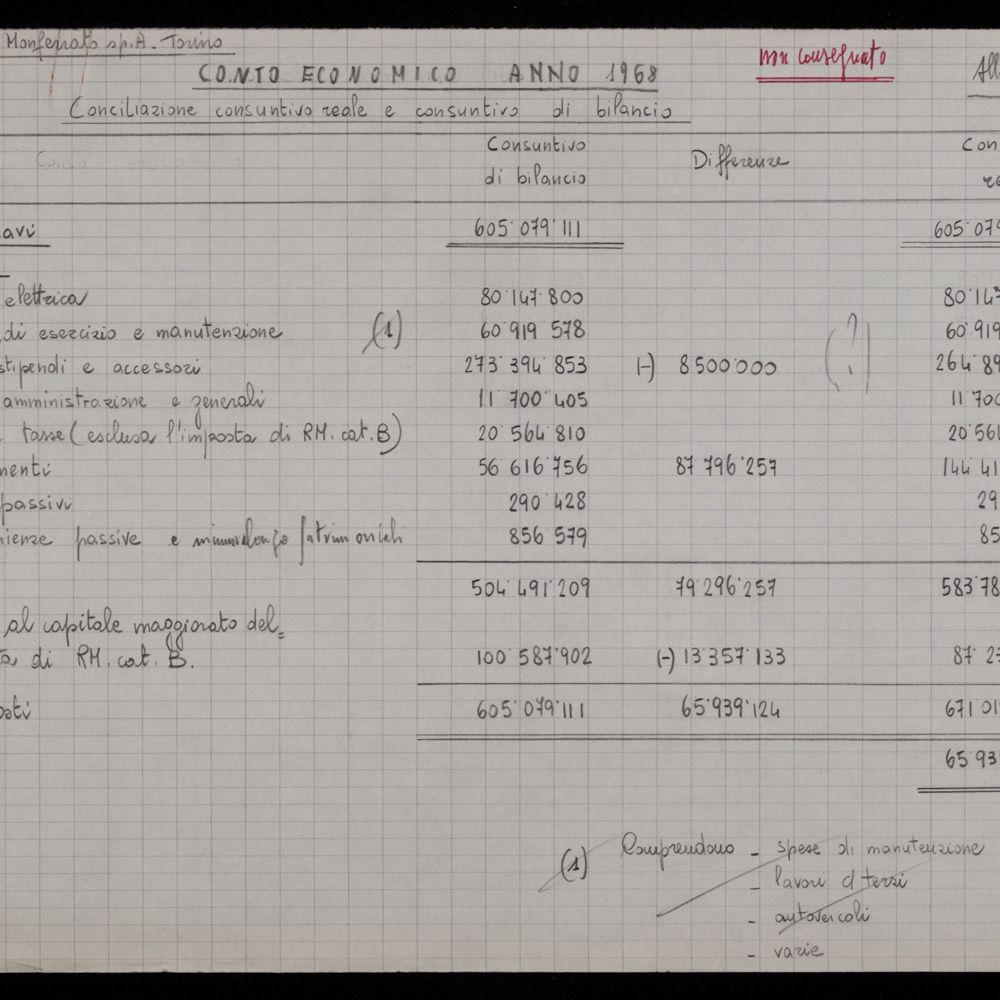 Monferrato s.p.A. Torino
non consegnato
CONTO ECONOMICO ANNO 1968
All
Conciliazione consuntivo reale e consuntivo di bilancio
Consuntivo di bilancio Differenze Con re
avi 605.079.111 605.079
elettrica 80.147.800 80.147
di esercizio e manutenzione (1) 60.919.578 (?) 60.919
stipendi e accessori 273.394.853 (-) 8.500.000 (!) 264.89
amministrazione e generali 11.700.405 11.700
tasse (esclusa l'imposta di RM. cat. B) 20.564.810 20.564
menti 56.616.756 87.796.257 144.41
passivi 290.428 29
nienze passive e minusvalenze patrimoniali 856.579 85
504.491.209 79.296.257 583.78
al capitale maggiorato del=
ta di RM. cat. B. 100.587.902 (-) 13.357.133 87.2
605.079.111 65.939.124 671.01
65.93
(1) Comprendono - spese di manutenzione
- lavori di terzi
- autoveicoli
- varie